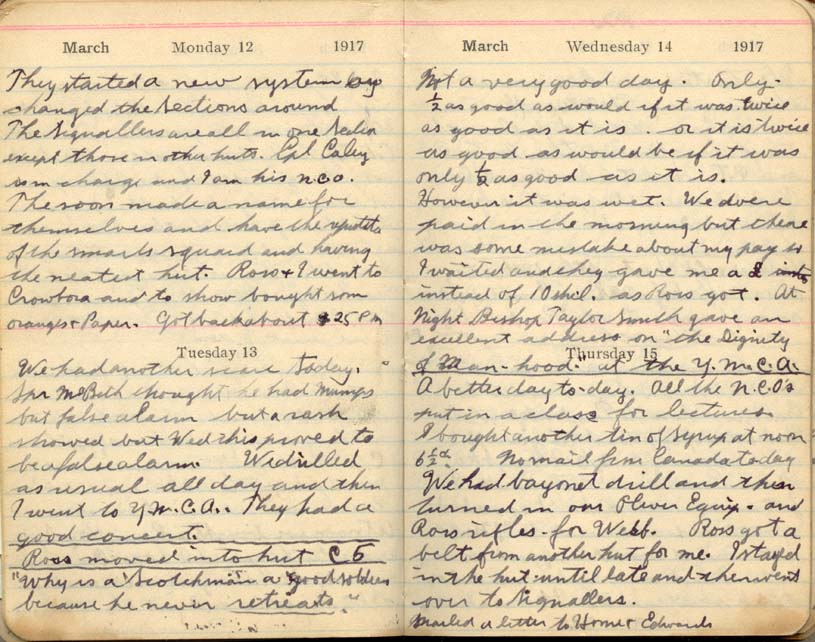 March Monday 12 1917
They started a new system
changed the Sections around
The Signallers are all in one Section
except those in other huts. Cpl Caley
is in charge and I am his n.c.o.
The soon made a name for
themselves and have the
of the smarts squard and having
the neatest hut. Ross + I went to
Crowbora and to show bought som
oranges + Paper. Got back about 25 Pm
Tuesday 13
We had another scare today.
Spr McBeth thought he had Mumps
but false alarm but a rash
showed but Wed this proved to
be a false alarm. We drilled
as usual all day and then
I went to Y.M.C.A. They had a
good concert.
Ross moved into hut C 5
"Why is a Scotchman a good soldier
because he never retreats."
March Wednesday 14 1917
Not a very good day. Only
½ as good as would if it was twice
as good as it is. or it is twice
as good as would be if it was
only ½ as good as it is.
However it was wet. We were
paid in the morning but there
was some mistake about my pay so
I waited and they gave me a £
instead of 10 shil. as Ross got. At
Night Bishop Taylor Smith gave an
excellent address on "the Dignity
of Man-hood." at the Y.M.C.A.
Thursday 15
A better day to-day. All the N.C.O's
put in a class for lectures
I bought another tin of Syrup at noon
6½d. No mail from Canada today
We had bayonet drill and then
turned in our Oliver Equip. and
Ross rifles. for Webb. Ross got a
belt from another hut for me. I stayed
in the hut until late and then went
over to Signallers.
Mailed a letter to Home + Edwards